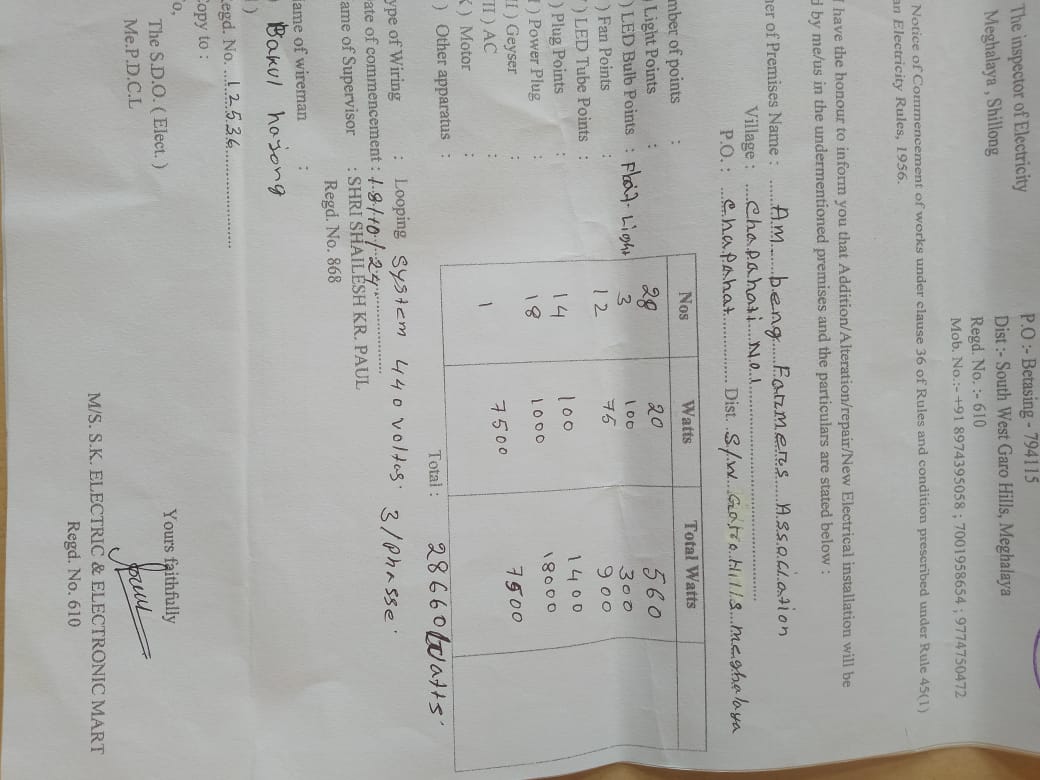 P.O :- Betasing - 794115
The inspector of Electricity
Dist :- South West Garo Hills, Meghalaya
Meghalaya , Shillong
Regd. No. :- 610
Mob. No.:- +91 8974395058 ; 7001958654 ; 9774750472
Notice of Commencement of works under clause 36 of Rules and condition prescribed under Rule 45(1)
an Electricity Rules, 1956.
have the honour to inform you that Addition/Alteration/repair/New Electrical installation will be
d by me/us in the undermentioned premises and the particulars are stated below :
er of Premises Name : A.M. beng Farmers Association
Village : Chapahati No.1
P.O. : Chapahat Dist. S/W Garo Hills meghalaya
mber of points :
Nos Watts Total Watts
Light Points : 28 20 560
) LED Bulb Points : Light 3 100 300
) Fan Points : 12 75 900
) LED Tube Points :
) Plug Points : 14 100 1400
) Power Plug : 18 1000 18000
II ) Geyser :
II ) AC : 1 7500 7500
X ) Motor :
) Other apparatus :
Total : 28660 Watts.
ype of Wiring : Looping system 440 voltas. 3/phasse.
ate of commencement : 18/10/24
ame of Supervisor : SHRI SHAILESH KR. PAUL
Regd. No. 868
ame of wireman :
) Bakul hajong
egd. No. 12536
opy to :
o,
Yours faithfully
The S.D.O. ( Elect. )
Me.P.D.C.L
Spaul
M/S. S.K. ELECTRIC & ELECTRONIC MART
Regd. No. 610